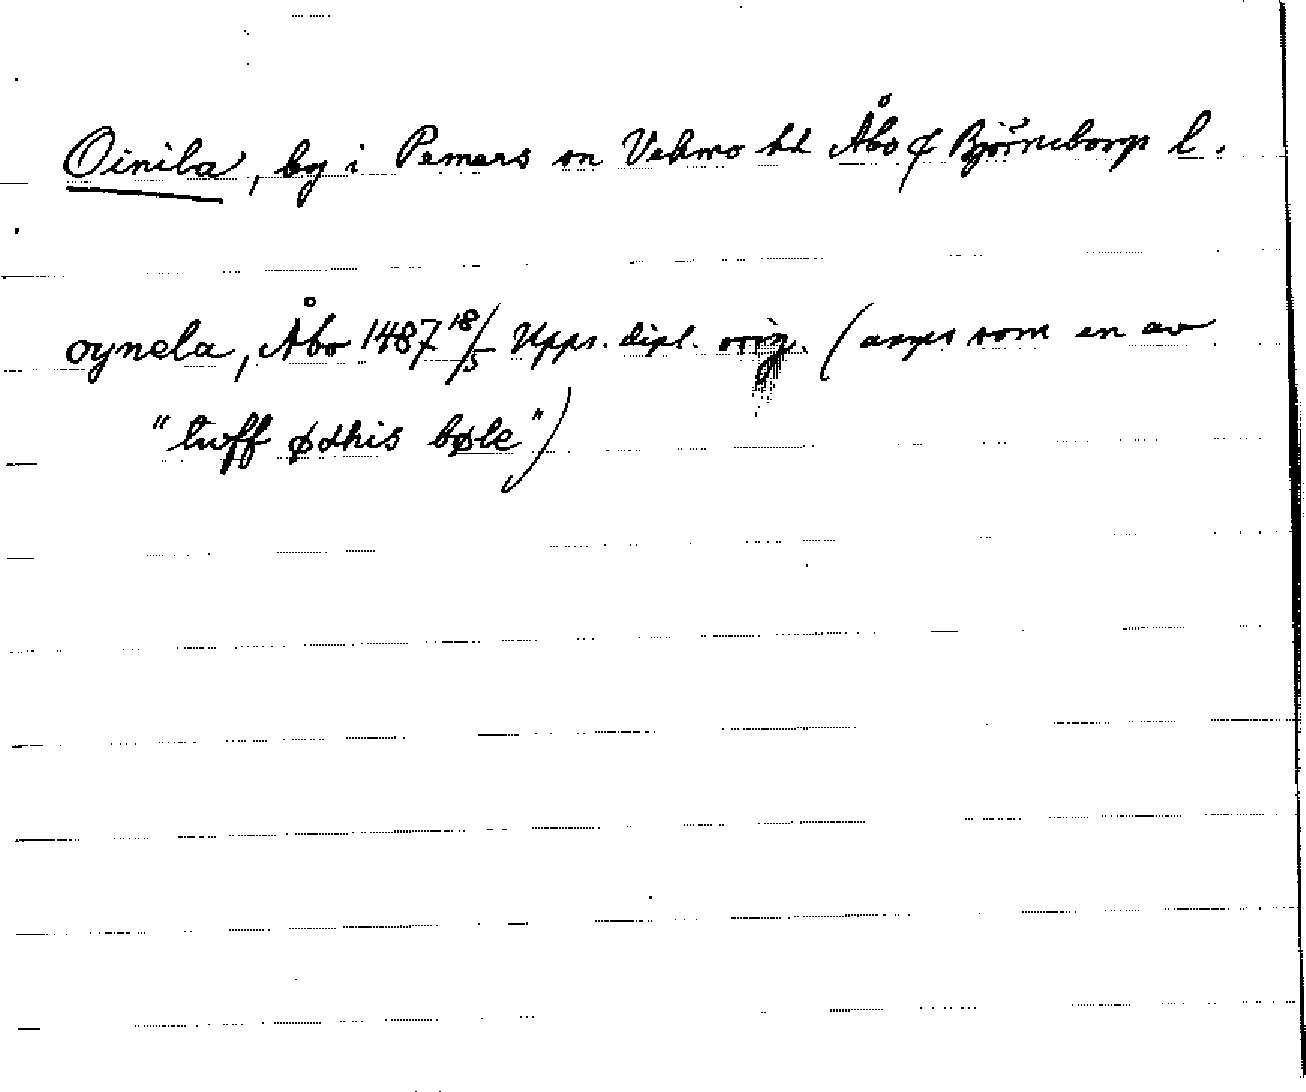 Oinila, by i Pemars sn Vehmo hd Åbo & Björneborgs l.
oynela, Åbo 1487 18/5 Upps. dipl. orig. (anges som en av
"twff ødhis bøle")